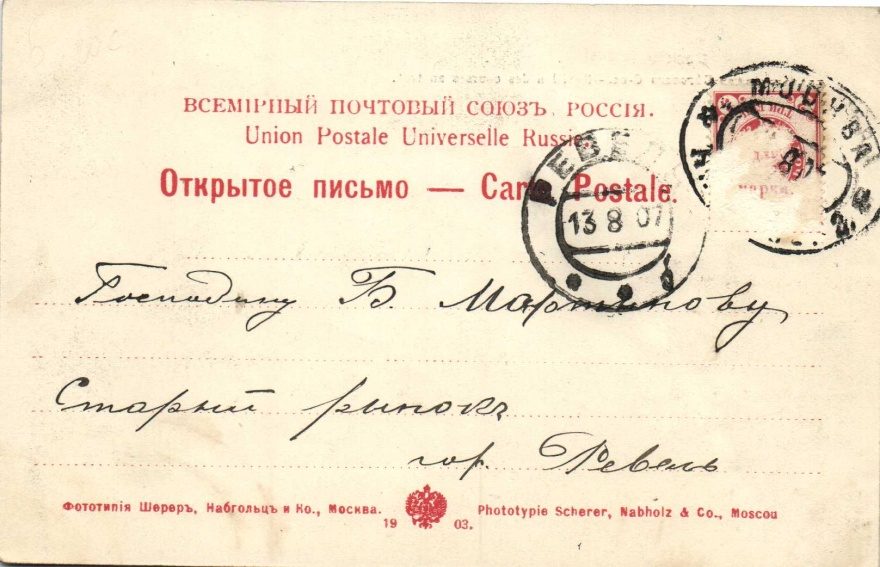 ВСЕМІРНЫЙ ПОЧТОВЫЙ СОЮЗЪ, РОССІЯ.
Union Postale Universelle Russie
Открытое письмо — Carte Postale.
РЕВЕЛ
13 8 07
МОСКВА
марка
Господину Б. Мартинову
Старый рынокъ
гор. Ревель
Фототипія Шереръ, Набгольцъ и Ко., Москва.
1903.
Phototypie Scherer, Nabholz & Co., Moscou